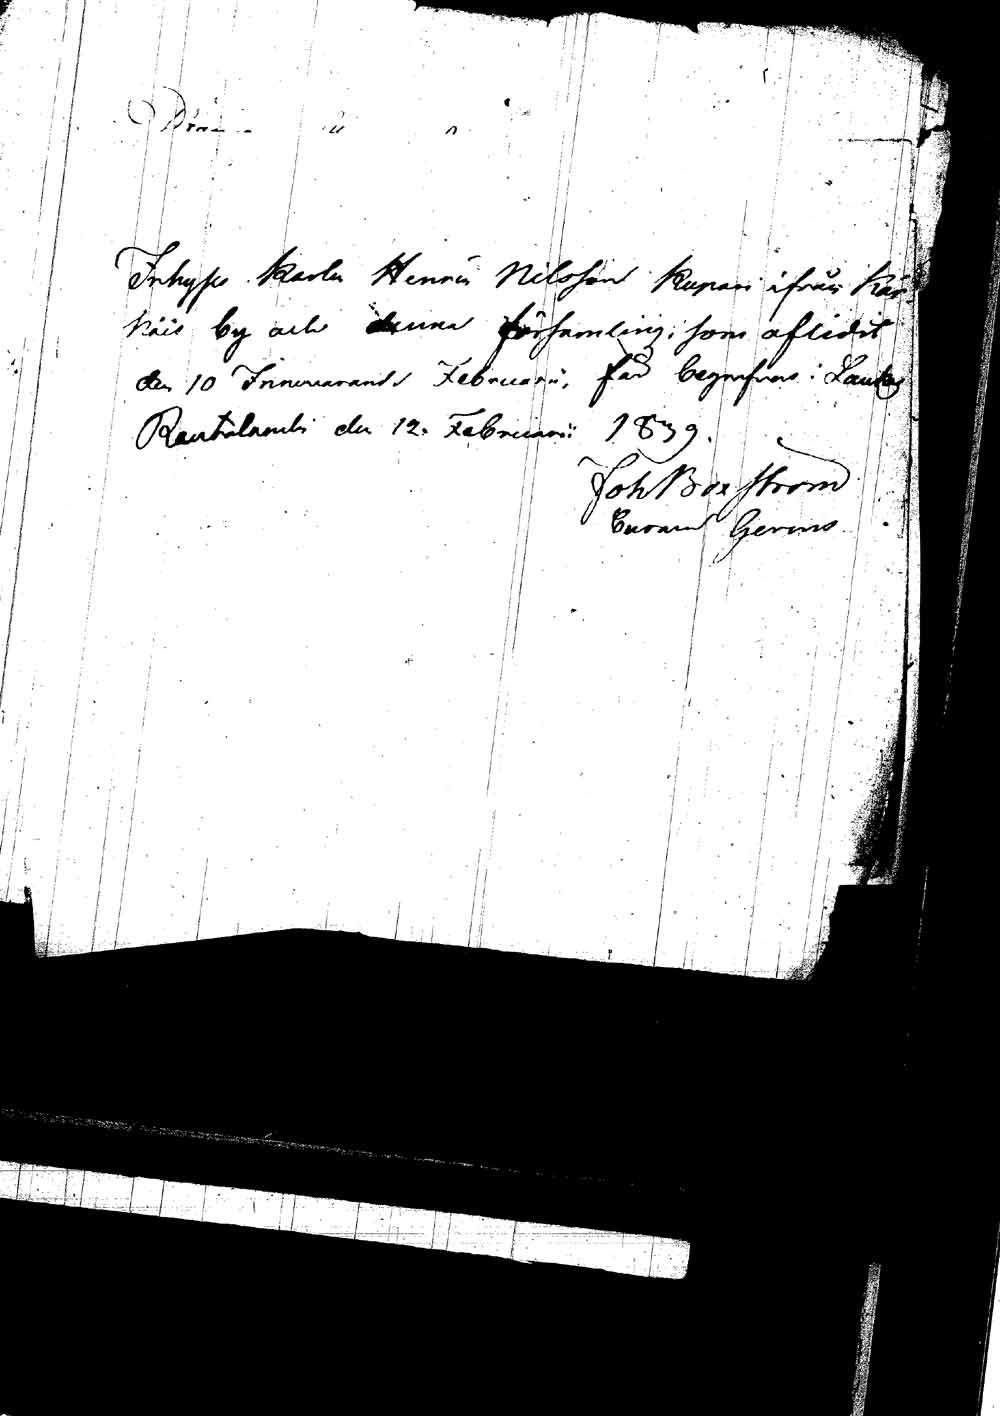 Inhyses Karlen Henric Nilsson Kupari ifrån Kär-
käis by och denna församling, som aflidit
den 10 Innevarande Februarii, får begrafvas i Laukas
Rautalambi den 12. Februarii 1839.
Joh Boxström